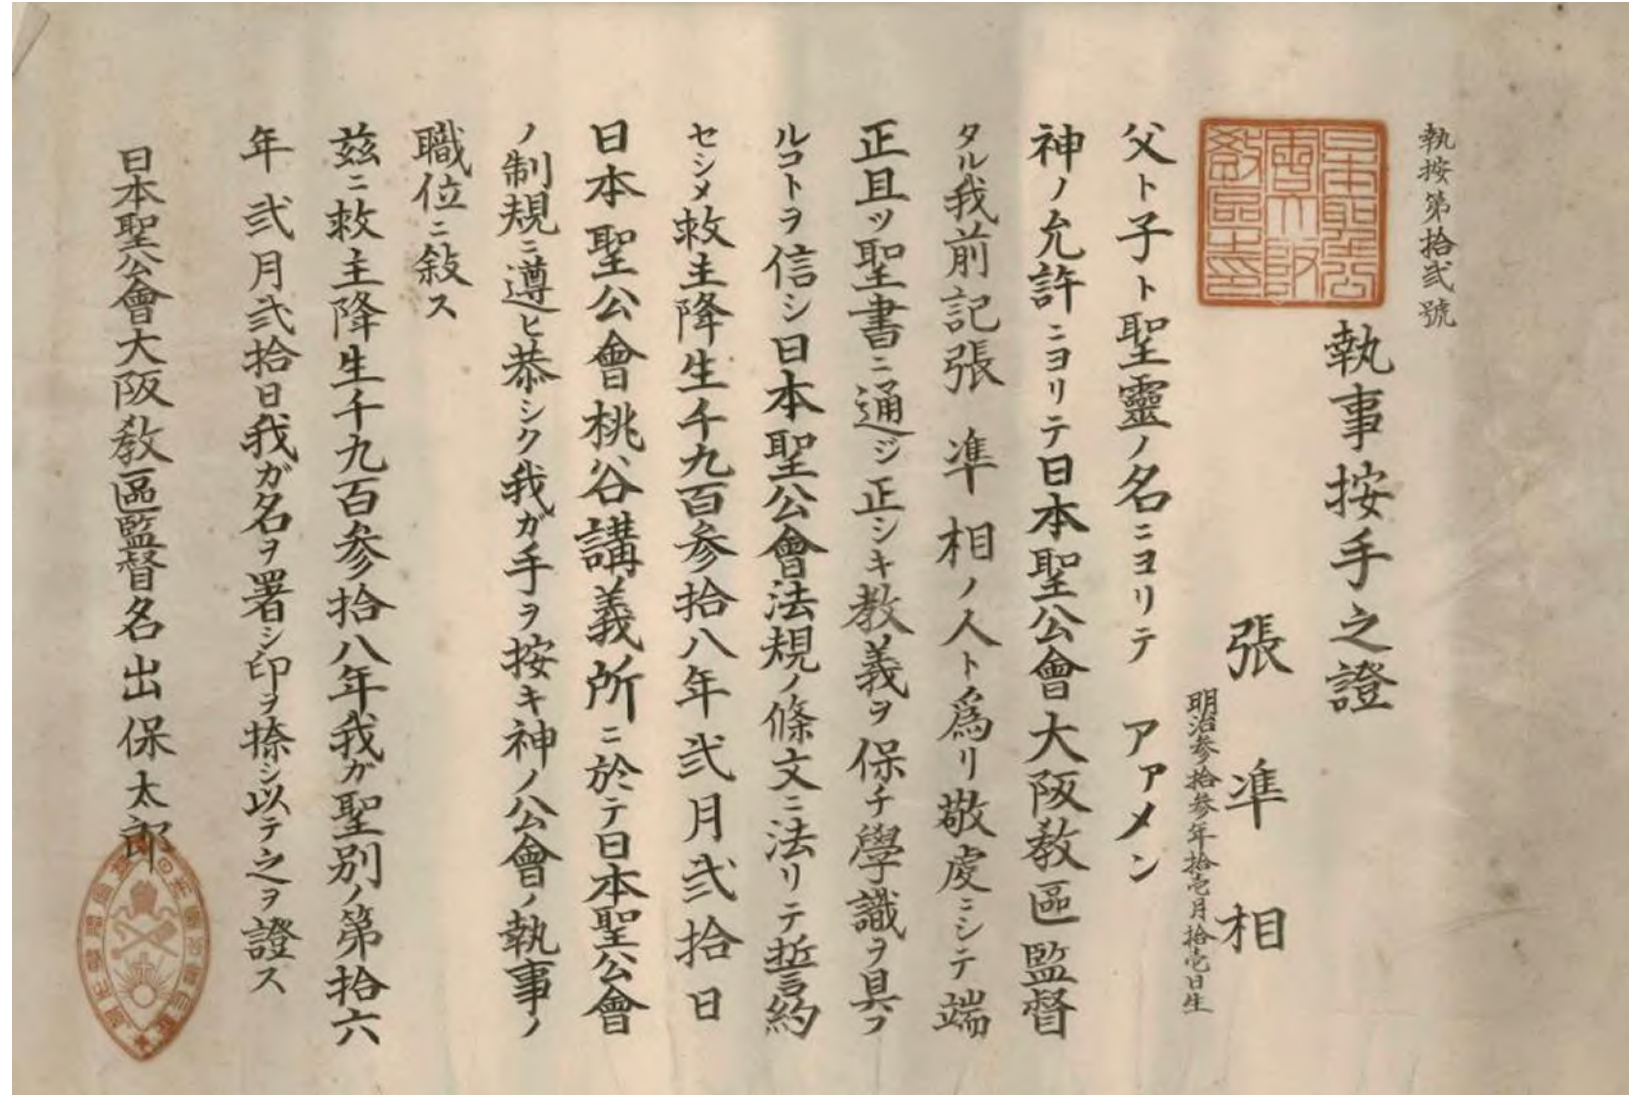 執按第拾弐號
執事按手之證
張 準 相
明治参拾参年拾壱月拾壱日生
父ト子ト聖靈ノ名ニヨリテ アァメン
神ノ允許ニヨリテ日本聖公會大阪教區監督
タル我前記張 準 相ノ人ト爲リ敬虔ニシテ端
正且ツ聖書ニ通ジ正シキ教義ヲ保チ學識ヲ具フ
ルコトヲ信シ日本聖公會法規ノ條文ニ法リテ誓約
セシメ救主降生千九百参拾八年弐月弐拾日
日本聖公會桃谷講義所ニ於テ日本聖公會
ノ制規ニ遵ヒ恭シク我ガ手ヲ按キ神ノ公會ノ執事ノ
職位ニ敍ス
玆ニ救主降生千九百参拾八年我ガ聖別ノ第拾六
年弐月弐拾日我ガ名ヲ署シ印ヲ捺シ以テ之ヲ證ス
日本聖公會大阪教區監督名出保太郎
日本聖公會大阪教區之印